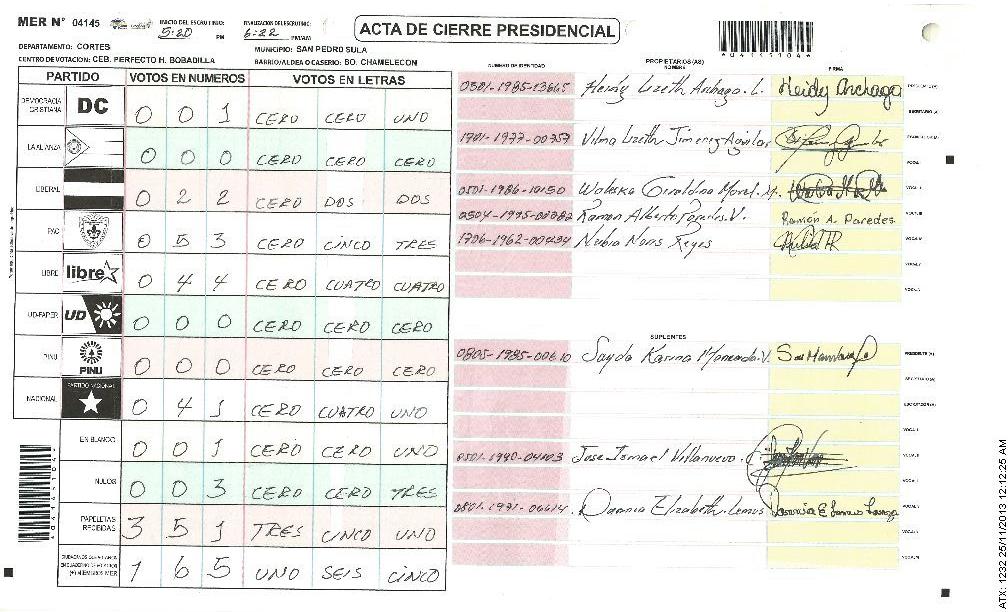 MER N° 04145
INICIO DEL ESCRUTINIO: 5:20 PM
FINALIZACION DEL ESCRUTINIO: 6:22 PM/AM
ACTA DE CIERRE PRESIDENCIAL
DEPARTAMENTO: CORTES
MUNICIPIO: SAN PEDRO SULA
CENTRO DE VOTACION: CEB. PERFECTO H. BOBADILLA
BARRIO/ALDEA O CASERIO: BO. CHAMELECON
PARTIDO VOTOS EN NUMEROS VOTOS EN LETRAS
DEMOCRACIA CRISTIANA DC 0 0 1 CERO CERO UNO
LA ALIANZA 0 0 0 CERO CERO CERO
LIBERAL 0 2 2 CERO DOS DOS
PAC 0 5 3 CERO CINCO TRES
LIBRE libre 0 4 4 CERO CUATRO CUATRO
UD-FAPER UD 0 0 0 CERO CERO CERO
PINU PINU 0 0 0 CERO CERO CERO
NACIONAL PARTIDO NACIONAL 0 4 1 CERO CUATRO UNO
EN BLANCO 0 0 1 CERO CERO UNO
NULOS 0 0 3 CERO CERO TRES
PAPELETAS RECIBIDAS 3 5 1 TRES CINCO UNO
1 6 5 UNO SEIS CINCO
NUMERO DE IDENTIDAD
PROPIETARIOS (AS)
NOMBRE
FIRMA
0501-1985-13645 Lizeth L. Heidy
1701-1977-00757 Vilma Lizeth Jimenez Aguilar
0501-1986-10150 Waleska Geraldina M.
Ramon Alberto V. Ramón A. Paredes
1706-1962-00434 Nubia Reyes
SUPLENTES
0805-1985-00610 Sayda Karina V.
Jose Ismael Villanueva
Elizabeth Lemus
ATX: 1232 25/11/2013 12:12:25 AM